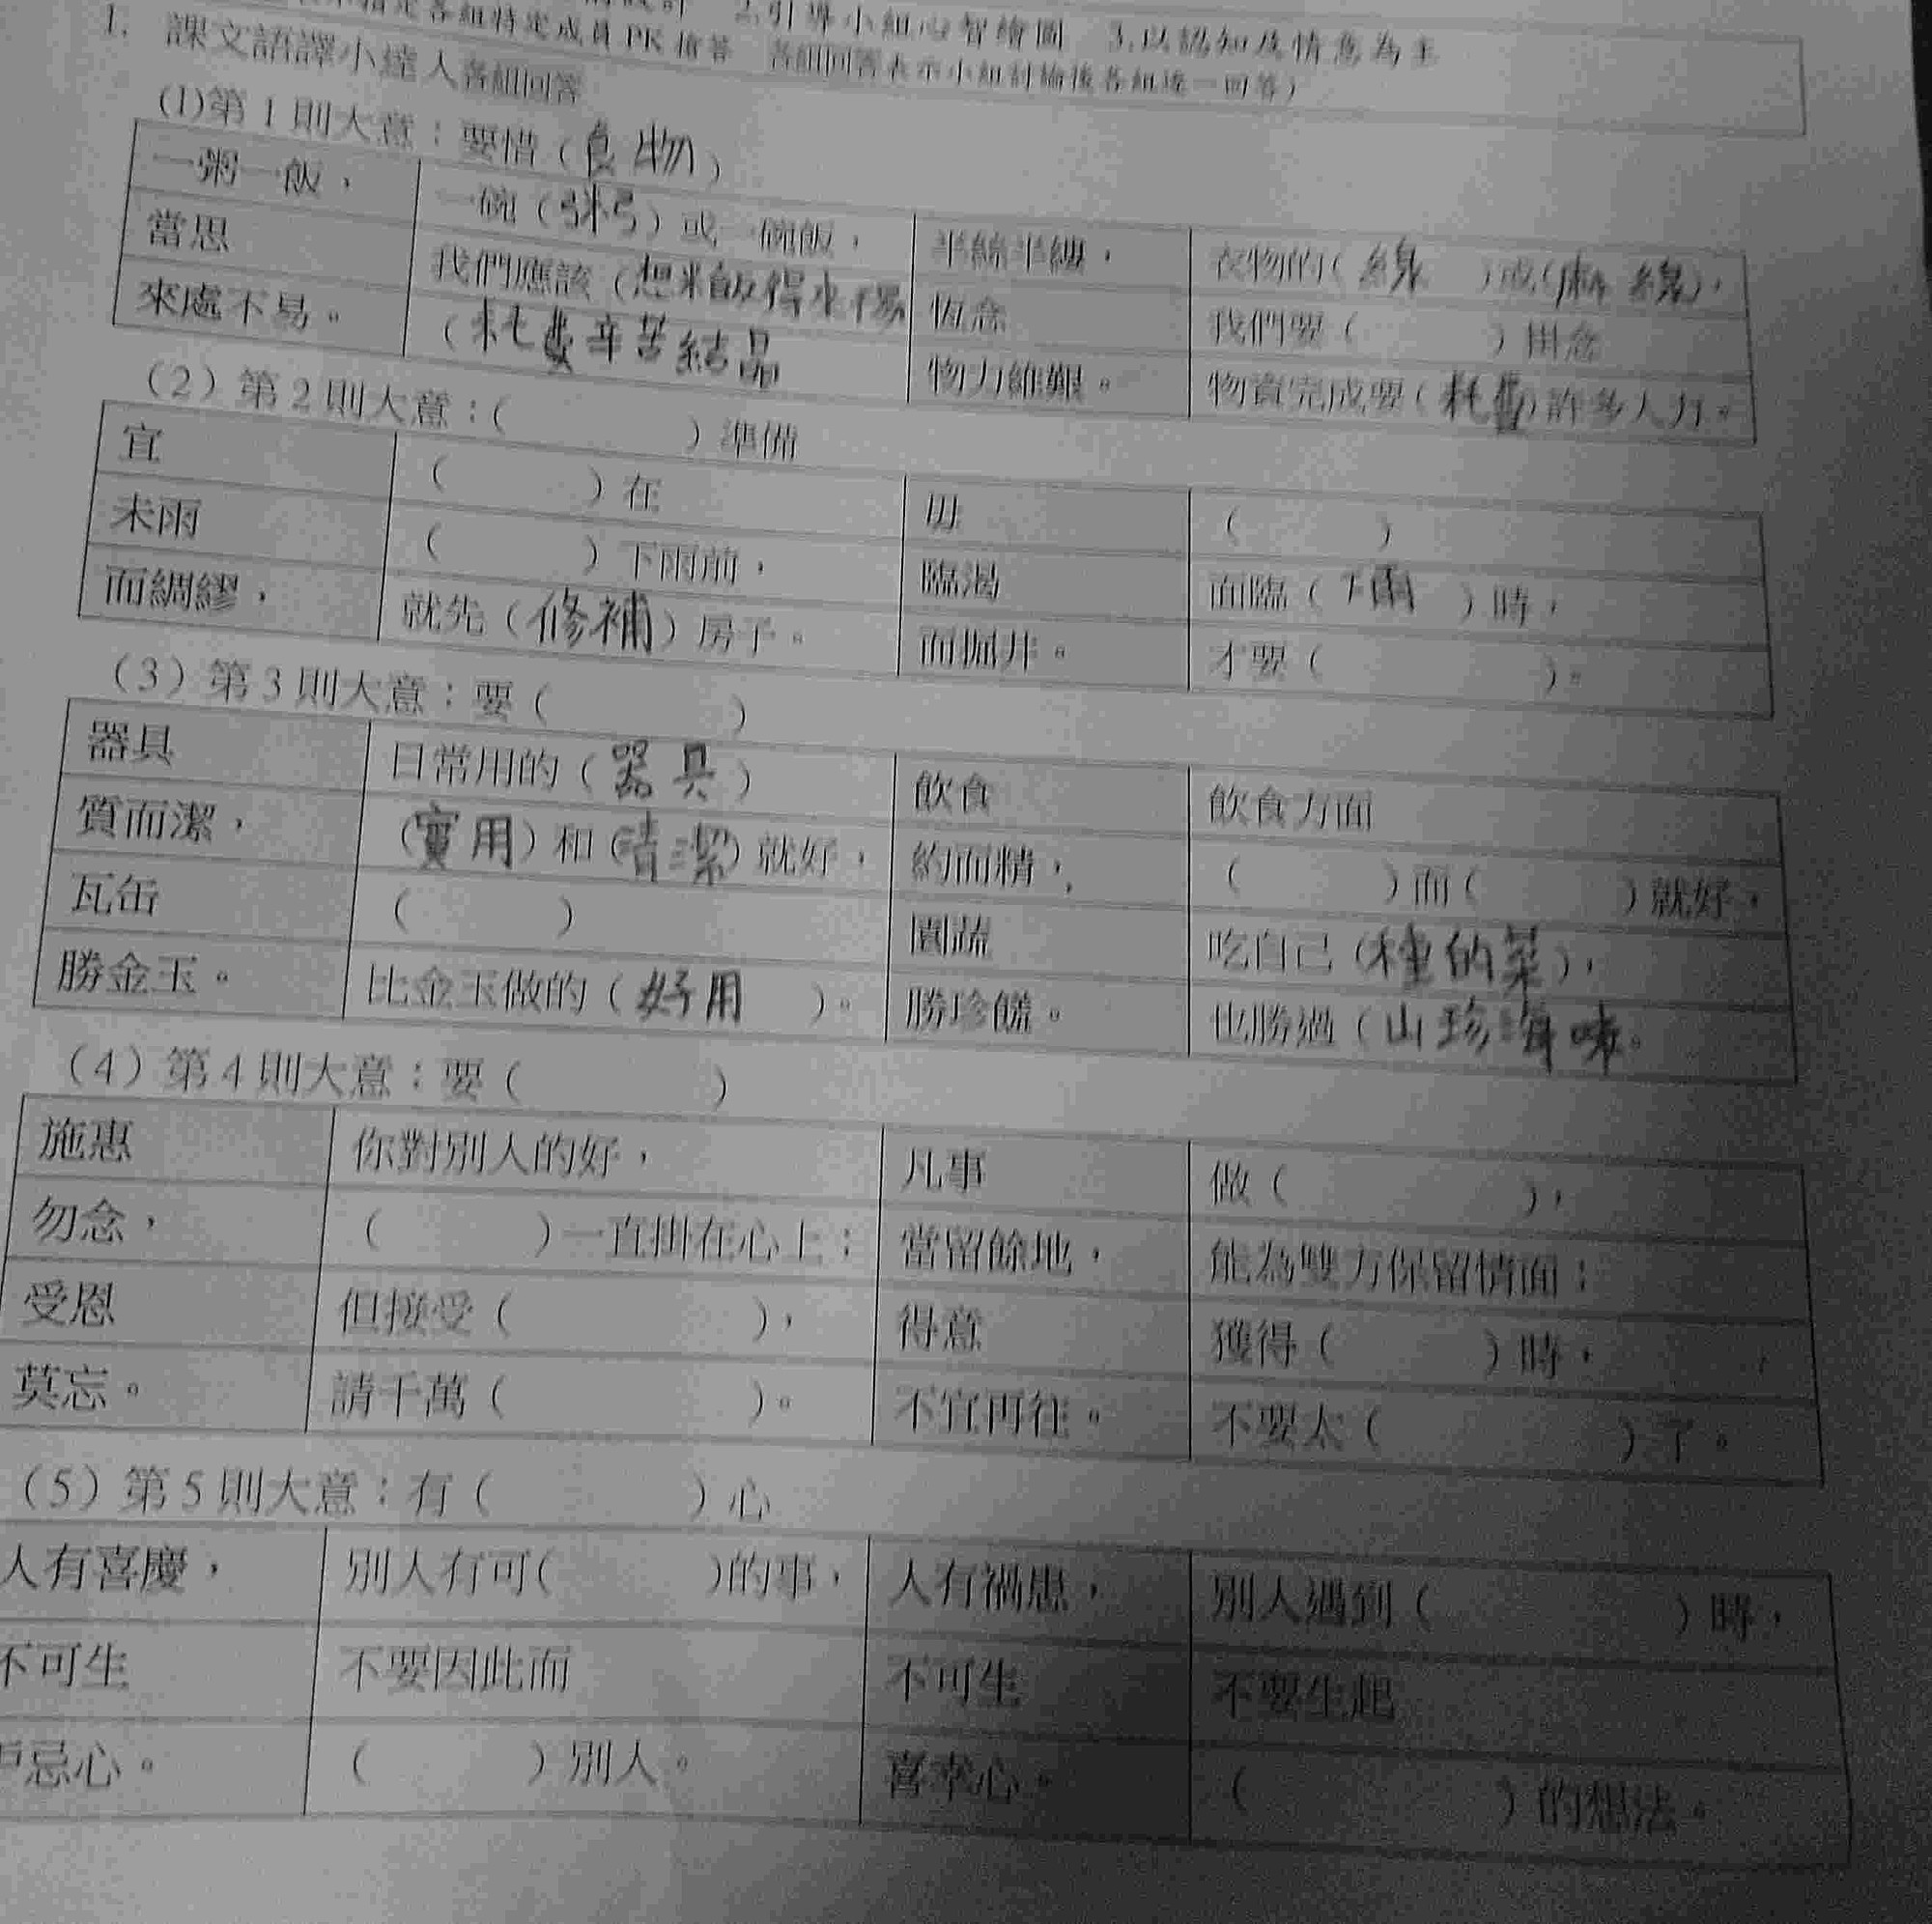 2.引導小組心智繪圖 3.以認知及情意為主
指定各組特定成員PK搶答 各組回答表示小組討論後各組逐一回答)
1. 課文語譯小達人各組回答
(1)第1則大意：要惜(食物)
一粥一飯， 一碗(粥)或一碗飯， 半絲半縷， 衣物的(線 )或(麻線)，
當思 我們應該(想米飯得來不易 恆念 我們要( )掛念
來處不易。 (耗費辛苦結晶 物力維艱。 物資完成要(耗費)許多人力。
(2)第2則大意：( )準備
宜 ( )在 毋 ( )
未雨 ( )下雨前， 臨渴 面臨(下雨 )時，
而綢繆， 就先(修補)房子。 而掘井。 才要( )。
(3)第3則大意：要( )
器具 日常用的(器具) 飲食 飲食方面
質而潔， (實用)和(清潔)就好， 約而精， ( )而( )就好，
瓦缶 ( ) 園蔬 吃自己(種的菜)，
勝金玉。 比金玉做的(好用 )。 勝珍饈。 也勝過(山珍海味。
(4)第4則大意：要( )
施惠 你對別人的好， 凡事 做( )，
勿念， ( )一直掛在心上； 當留餘地， 能為雙方保留情面；
受恩 但接受( )， 得意 獲得( )時，
莫忘。 請千萬( )。 不宜再往。 不要太( )了。
(5)第5則大意：有( )心
人有喜慶， 別人有可( )的事， 人有禍患， 別人遇到( )時，
不可生 不要因此而 不可生 不要生起
忌心。 ( )別人。 喜幸心。 ( )的想法。